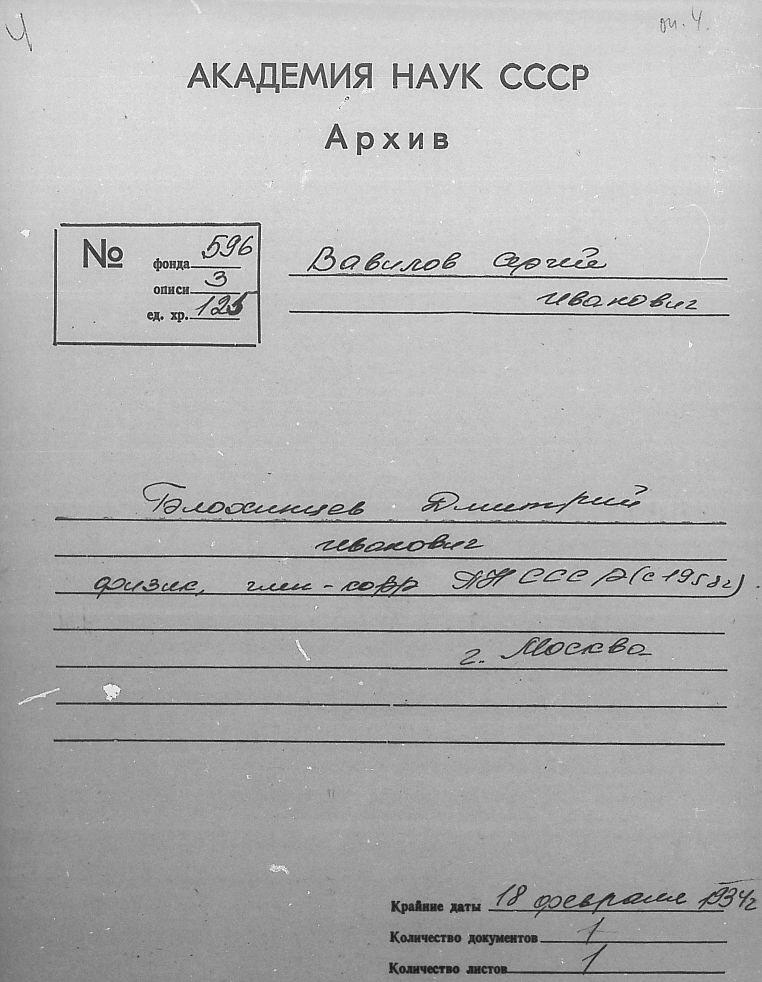 оп. 4.
АКАДЕМИЯ НАУК СССР
Архив
№
фонда 596
описи 3
ед. хр. 125
Вавилов Сергей
Иванович
Блохинцев Дмитрий
Иванович
физик, член-корр АН СССР (с 1958г).
г. Москва
Крайние даты 18 февраля 1934г
Количество документов 1
Количество листов 1